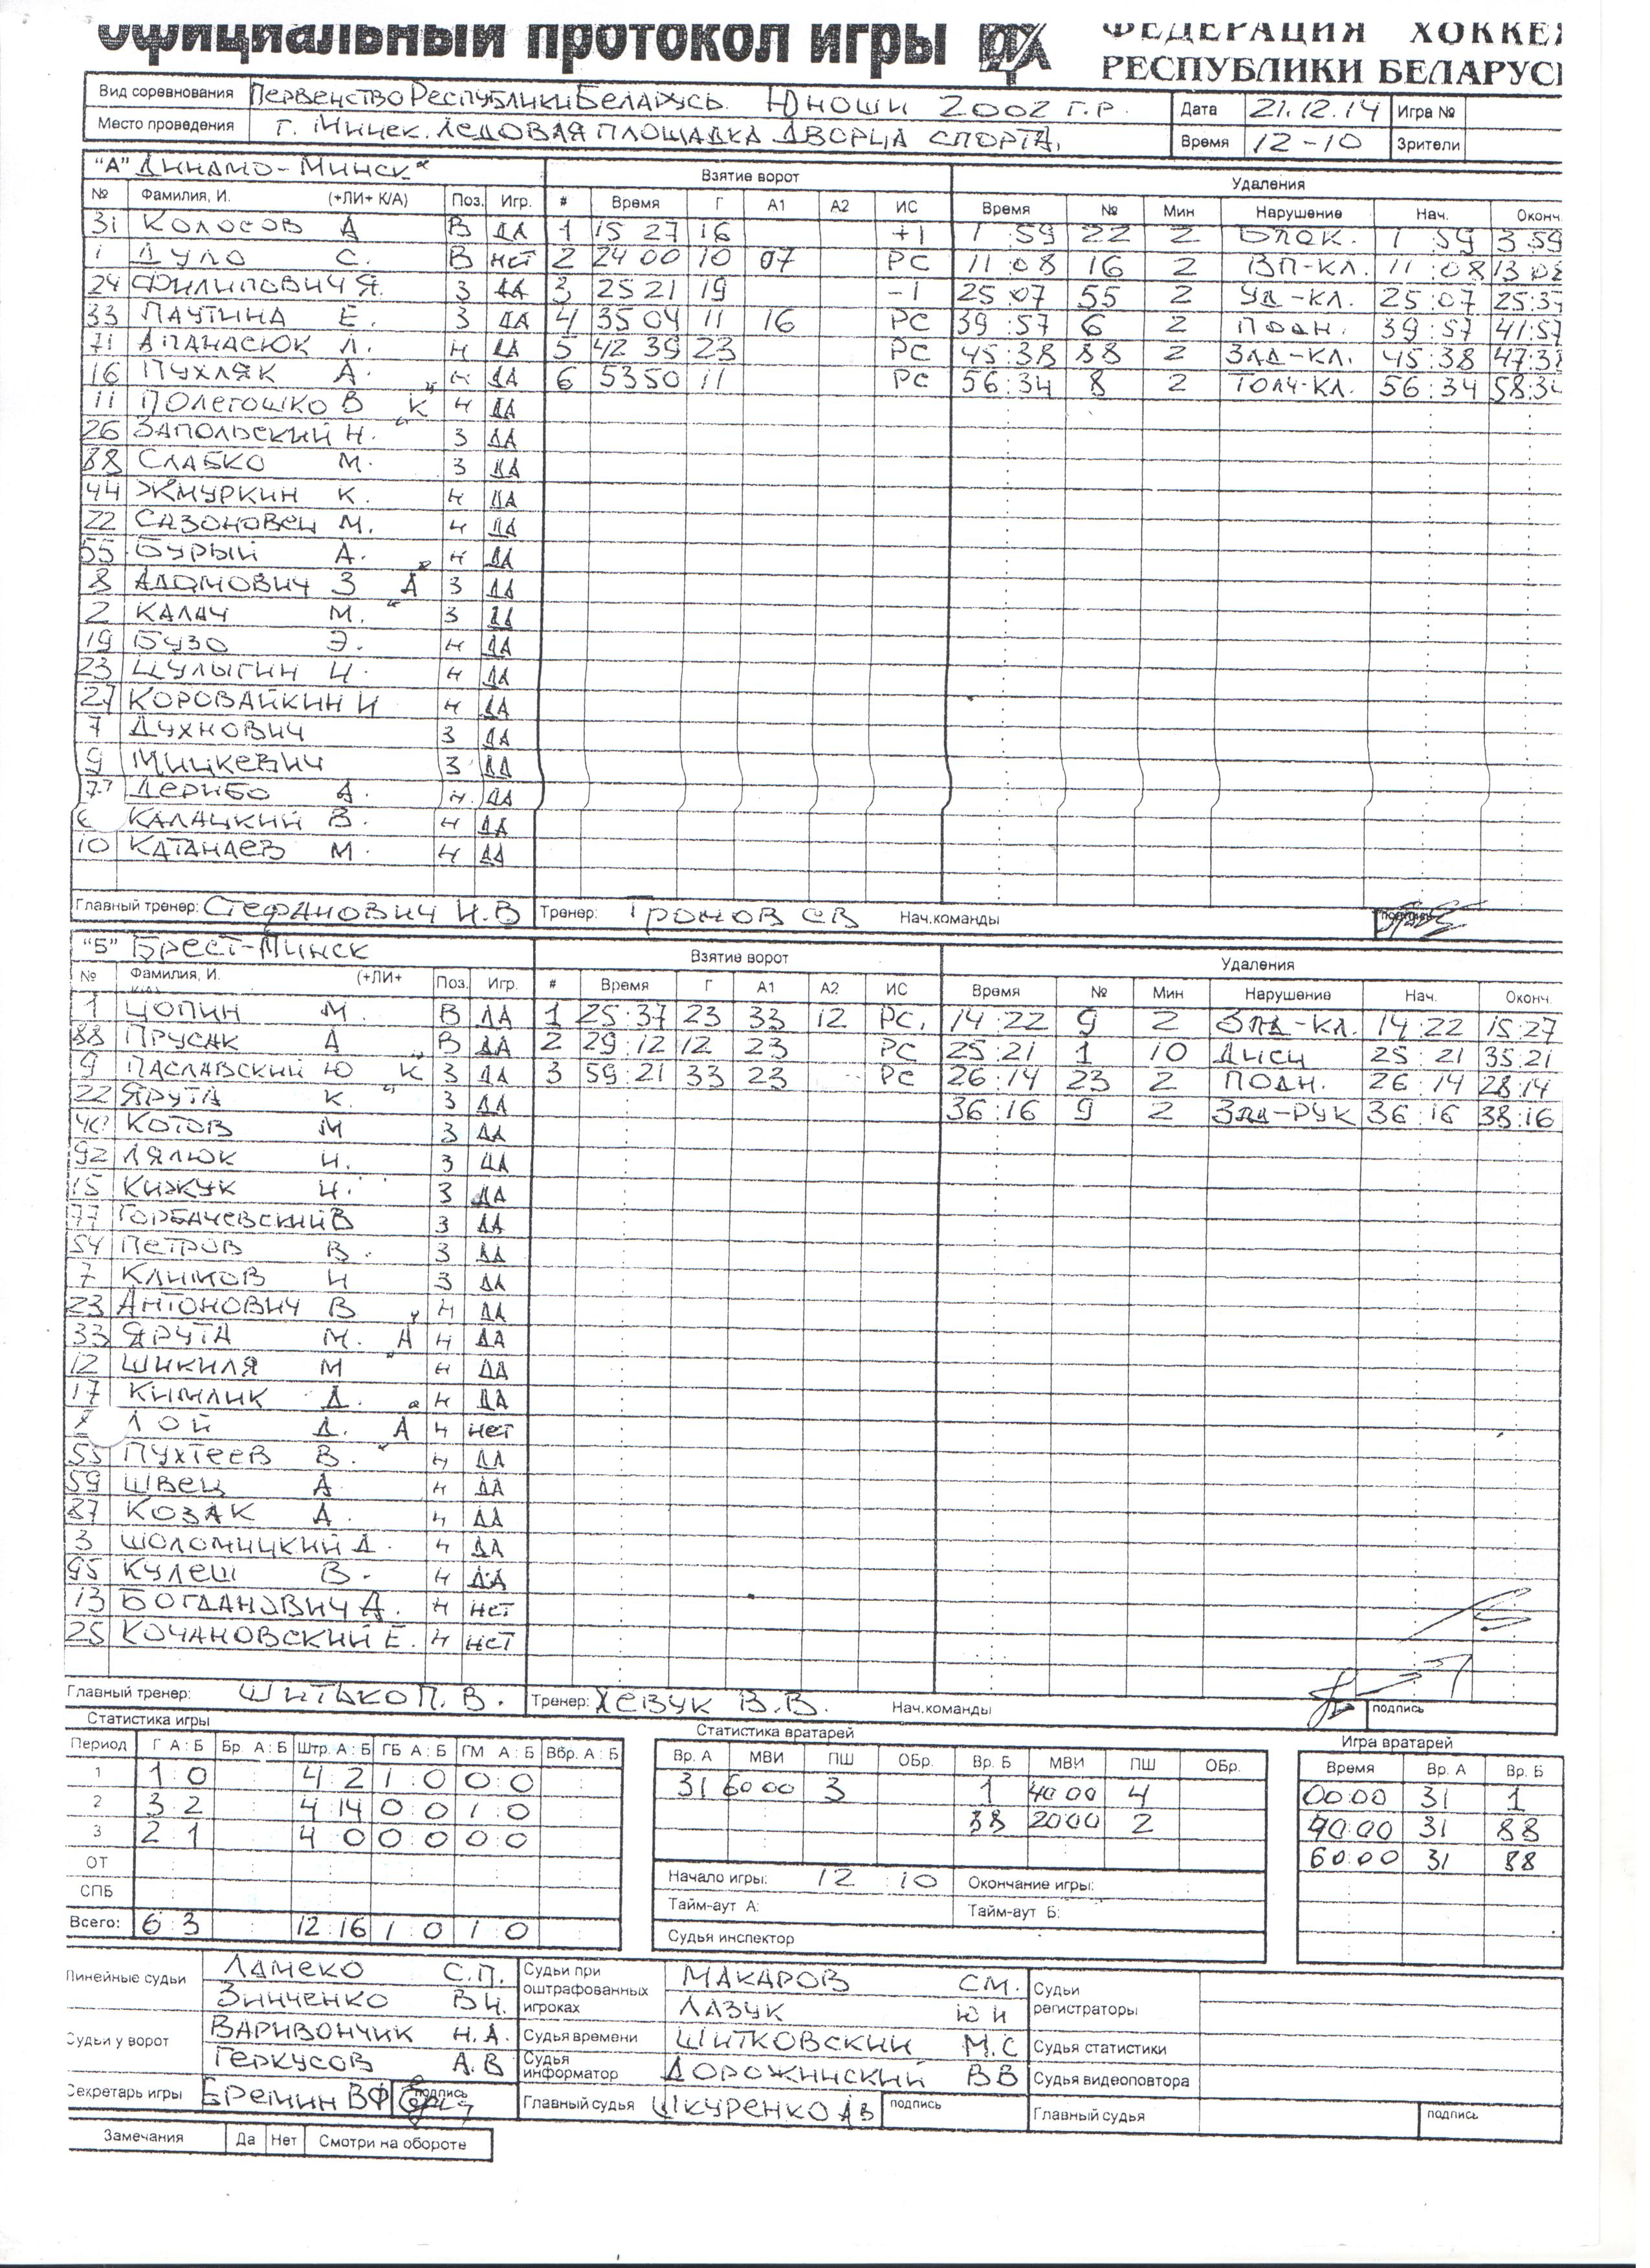 Официальный протокол игры ФЕДЕРАЦИЯ ХОККЕЯ
РЕСПУБЛИКИ БЕЛАРУСЬ
Вид соревнования Первенство Республики Беларусь. Юноши 2002 г.р. Дата 21.12.14 Игра №
Место проведения г. Минск. Ледовая площадка Дворца спорта. Время 12-10 Зрители
"А" Динамо-Минск" Взятие ворот Удаления
№ Фамилия, И. (+ЛИ+ К/А) Поз. Игр. # Время Г А1 А2 ИС Время № Мин Нарушение Нач. Оконч.
31 Колосов А В ДА 1 15 27 16 +1 1:59 22 2 Блок. 1:59 3:59
1 Дуло С. В нет 2 24 00 10 07 РС 11:08 16 2 ВП-КЛ. 11:08 13:08
24 Филипович Я. З ДА 3 25 21 19 -1 25:07 55 2 Уд-кл. 25:07 25:37
33 Паутина Е. З ДА 4 35 04 11 16 РС 39:57 6 2 Подн. 39:57 41:57
71 Апанасюк Л. Н ДА 5 42 39 23 РС 45:38 88 2 Зад-кл. 45:38 47:38
16 Пухляк А. Н ДА 6 53 50 11 РС 56:34 8 2 Толч-кл. 56:34 58:34
11 Полегошко В "К" Н ДА
26 Запольский Н. З ДА
88 Слабко М. З ДА
44 Жмуркин К. Н ДА
22 Сазоновец М. Н ДА
55 Бурый А. Н ДА
8 Адомович З "А" З ДА
2 Калач М. З ДА
19 Бузо Э. Н ДА
23 Цулыгин И. Н ДА
27 Коровайкин И Н ДА
7 Духнович З ДА
9 Мицкевич З ДА
77 Дерибо А. Н. ДА
Калацкий В. Н ДА
10 Катанаев М. Н ДА
Главный тренер: Стефанович И.В Тренер: Громов СВ Нач.команды подпись
"Б" Брест-Минск Взятие ворот Удаления
№ Фамилия, И. (+ЛИ+ К/А) Поз. Игр. # Время Г А1 А2 ИС Время № Мин Нарушение Нач. Оконч.
1 Цопин М. В ДА 1 25:37 23 33 12 РС. 14:22 9 2 Зад-кл. 14:22 15:27
88 Прусак А В ДА 2 29:12 12 23 РС 25:21 1 10 Дисц 25:21 35:21
9 Паславский Ю "К" З ДА 3 59:21 33 23 РС 26:14 23 2 Подн. 26:14 28:14
22 Ярута К. З ДА 36:16 9 2 Зад-рук 36:16 38:16
Котов М З ДА
92 Лялюк И. З ДА
15 Кижук И. З ДА
77 Горбачевский В З ДА
54 Петров В. З ДА
7 Климов И З ДА
23 Антонович В Н ДА
33 Ярута М. "А" Н ДА
12 Шикиля М Н ДА
17 Кимлик Д. Н ДА
Лой Д. "А" Н нет
55 Пухтеев В. Н ДА
59 Швец А Н ДА
87 Козак А. Н ДА
3 Шоломицкий Д. Н ДА
95 Кулеш В. Н ДА
13 Богданович А. Н нет
25 Кочановский Е. Н нет
Главный тренер: Шитько П.В. Тренер: Хевук В.В. Нач.команды подпись
Статистика игры Статистика вратарей Игра вратарей
Период Г А:Б Бр. А:Б Штр. А:Б ГБ А:Б ГМ А:Б Вбр. А:Б Вр. А МВИ ПШ ОБр. Вр. Б МВИ ПШ ОБр. Время Вр. А Вр. Б
1 1:0 4:2 1:0 0:0 31 60 00 3 1 40 00 4 00:00 31 1
2 3:2 4:14 0:0 1:0 88 20 00 2 40:00 31 88
3 2:1 4:0 0:0 0:0 60:00 31 88
ОТ Начало игры: 12:10 Окончание игры:
СПБ Тайм-аут А: Тайм-аут Б:
Всего: 6:3 12:16 1:0 1:0 Судья инспектор
Линейные судьи Ламеко С.П. Судьи при оштрафованных игроках Макаров СМ. Судьи регистраторы
Зинченко ВИ. Лазук Ю И
Судьи у ворот Варивончик Н.А. Судья времени Шитковский М.С Судья статистики
Геркусов А.В Судья информатор Дорожинский ВВ Судья видеоповтора
Секретарь игры Еремин ВФ подпись Главный судья Шкуренко АВ подпись Главный судья подпись
Замечания Да Нет Смотри на обороте